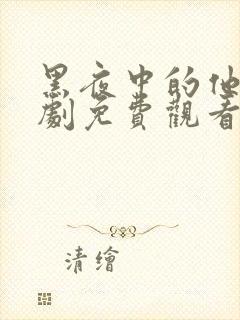 黑夜中的他
劇免費觀看
清繪